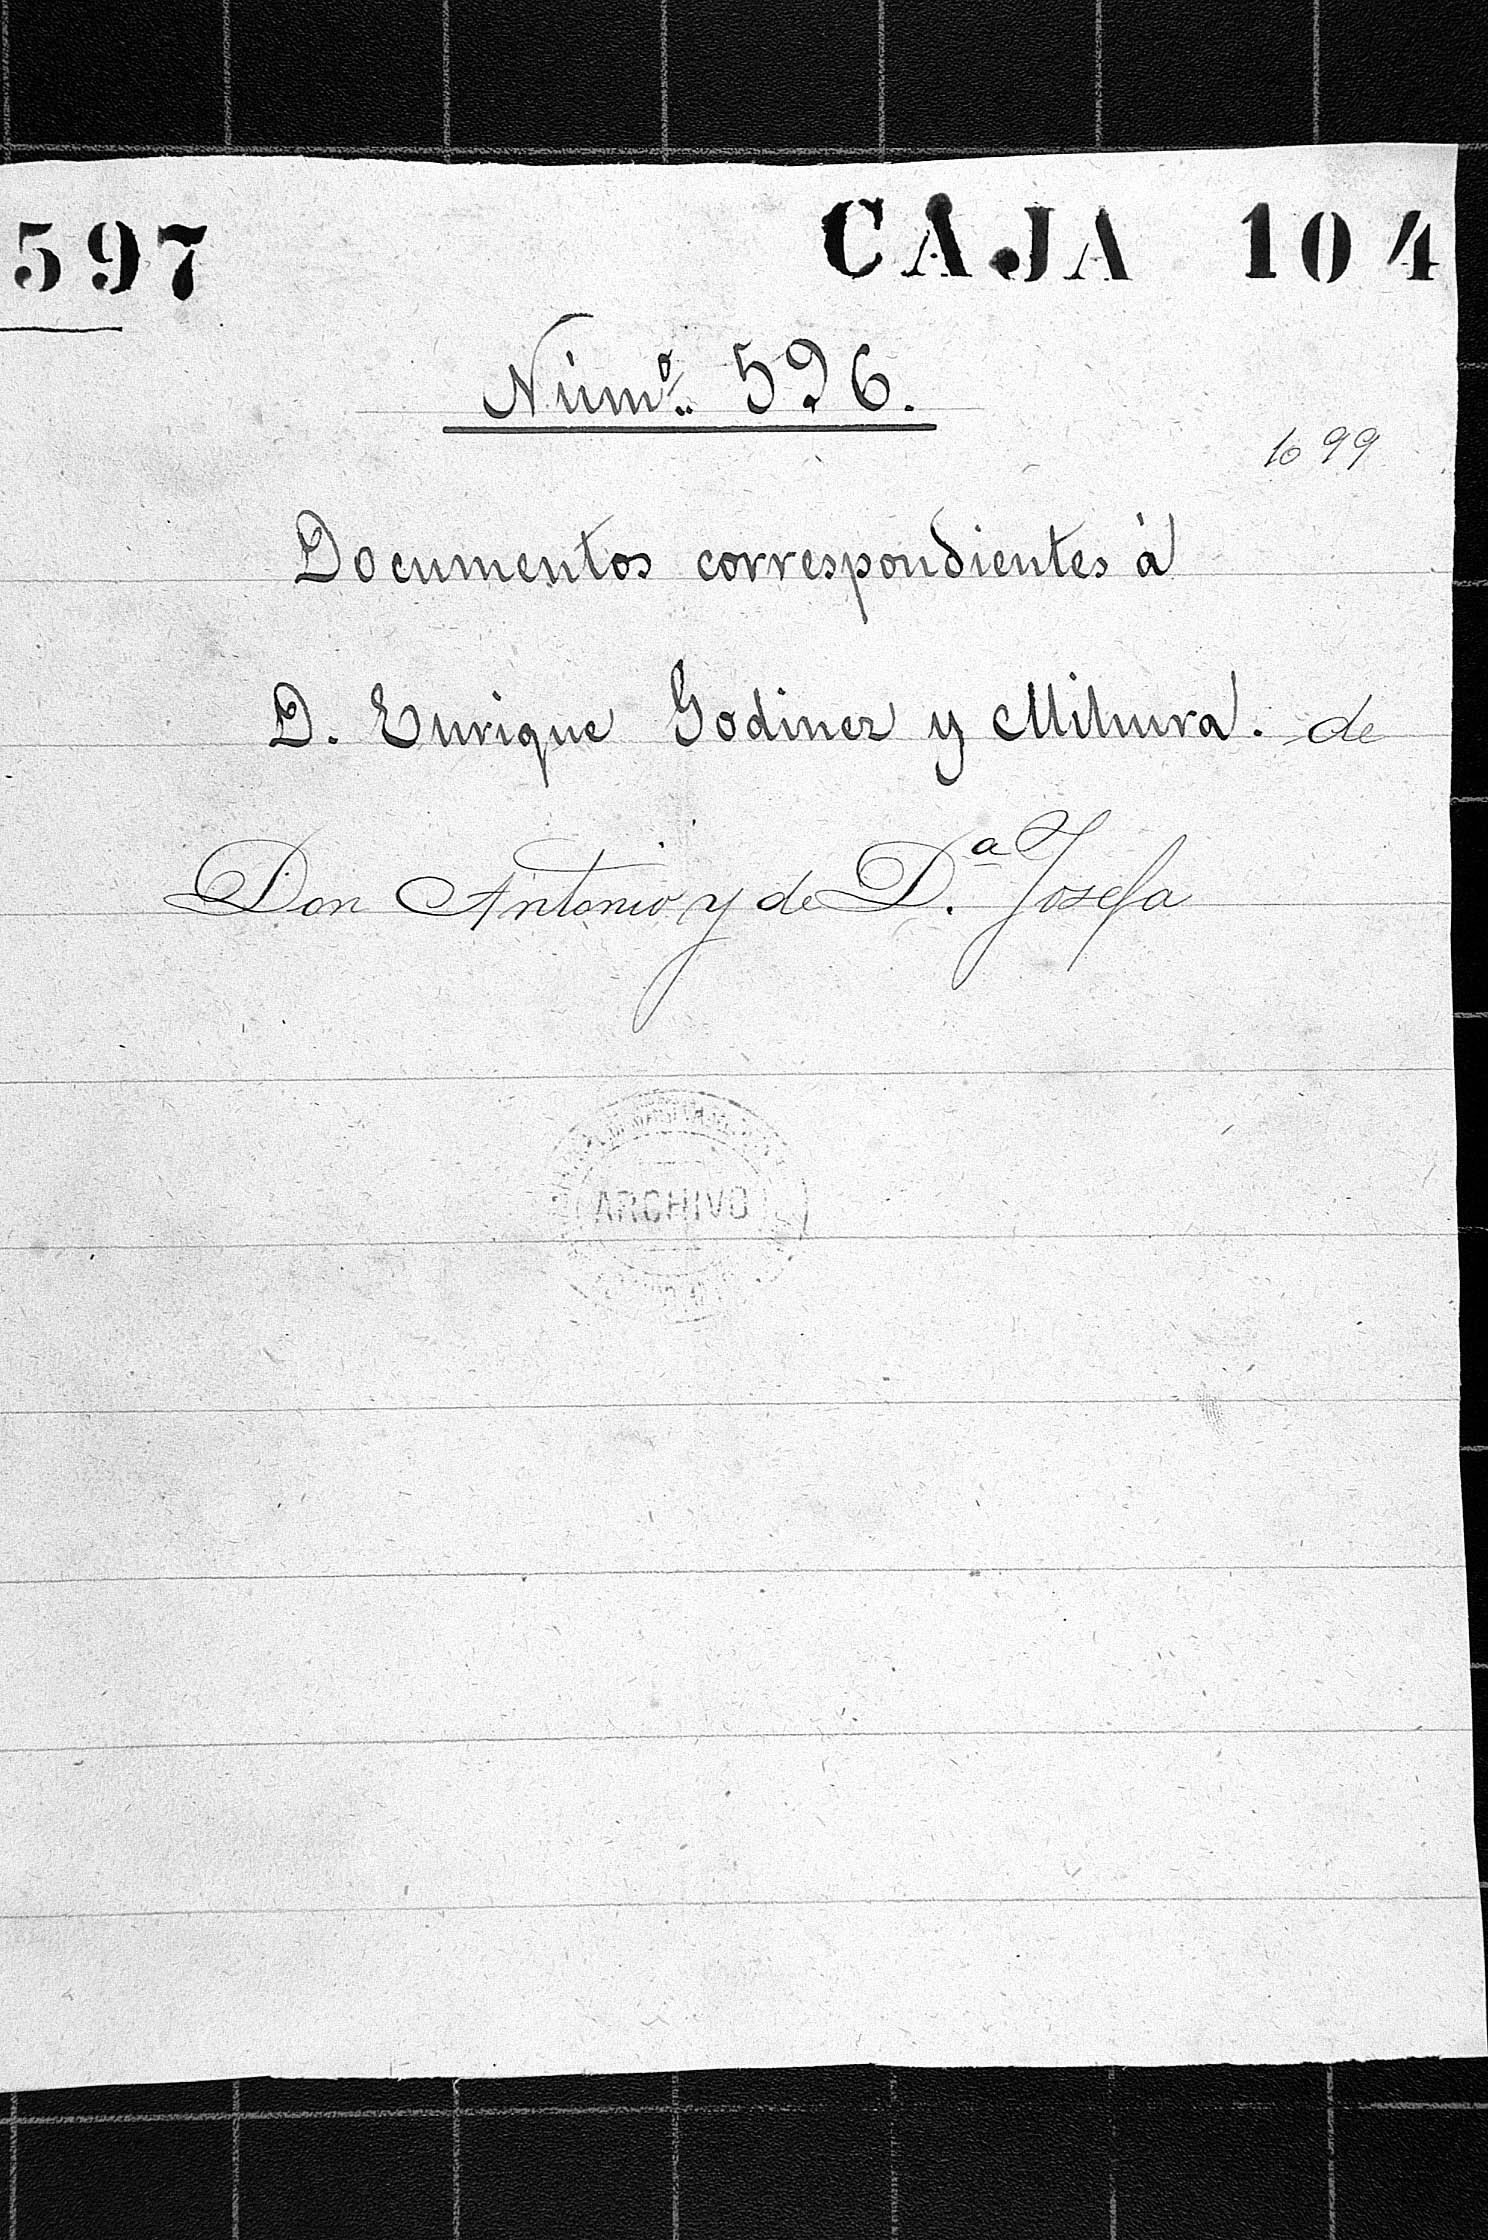 597 CAJA 104
Núm.º 596.
1099
Documentos correspondientes á
D. Enrique Godinez y Mihura. de
Don Antonio y de D.ª Josefa
ARCHIVO